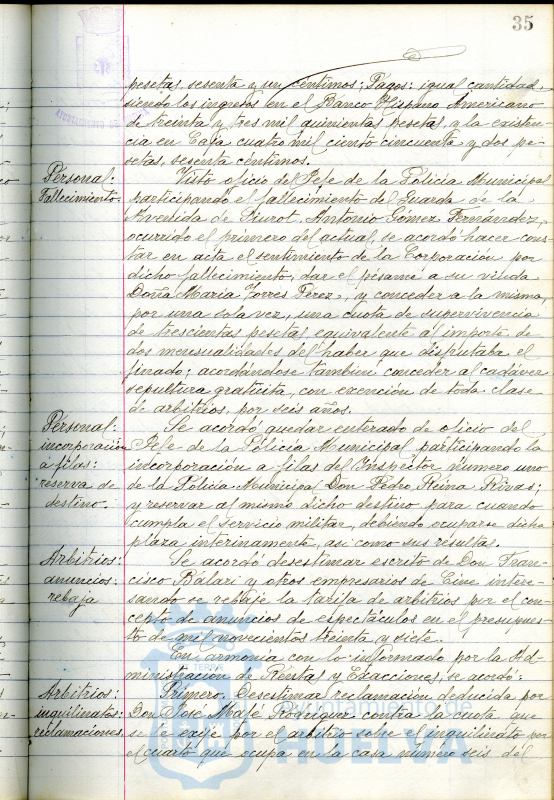 35
pesetas, sesenta y un céntimos; Pagos: igual cantidad,
siendo los ingresos en el Banco Hispano Americano
de treinta y tres mil quinientas pesetas, y la existen-
cia en Caja cuatro mil ciento cincuenta y dos pe-
setas, sesenta céntimos.
Personal: Visto oficio del Jefe de la Policía Municipal
Fallecimiento. participando el fallecimiento del Guarda de la
Avenida de Antonio Gómez Fernández,
ocurrido el primero del actual, se acordó hacer cons-
tar en acta el sentimiento de la Corporación por
dicho fallecimiento, dar el pésame a su viuda
Doña María Torres Pérez, y conceder a la misma,
por una sola vez, una cuota de supervivencia
de trescientas pesetas equivalente al importe de
dos mensualidades del haber que disfrutaba el
finado; acordándose también conceder al cadáver
sepultura gratuita, con exención de toda clase
de arbitrios, por seis años.
Personal: Se acordó quedar enterado de oficio del
incorporación Jefe de la Policía Municipal participando la
a filas: incorporación a filas del Inspector número uno
reserva de de la Policía Municipal Don Pedro Rivas;
destino. y reservar al mismo dicho destino para cuando
cumpla el servicio militar, debiendo ocuparse dicha
plaza interinamente, así como sus resultas.
Arbitrios: Se acordó desestimar escrito de Don Fran-
anuncios: cisco Balari y otros empresarios de Cine intere-
rebaja sando se rebaje la tarifa de arbitrios por el con-
cepto de anuncios de espectáculos en el presupues-
to de mil novecientos treinta y siete.
En armonía con lo informado por la Ad-
ministración de Rentas y Exacciones, se acordó:
Arbitrios: Primero. Desestimar reclamación deducida por
inquilinatos: Don José Rodríguez contra la cuota que
reclamaciones se le exije por el arbitrio sobre el inquilinato por
el cuarto que ocupa en la casa número seis del
Ayuntamiento de
HUELVA